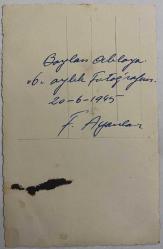 Baylan Ablaya
6. aylık Fotoğrafım.
20-6-1945
F. Ayanlar